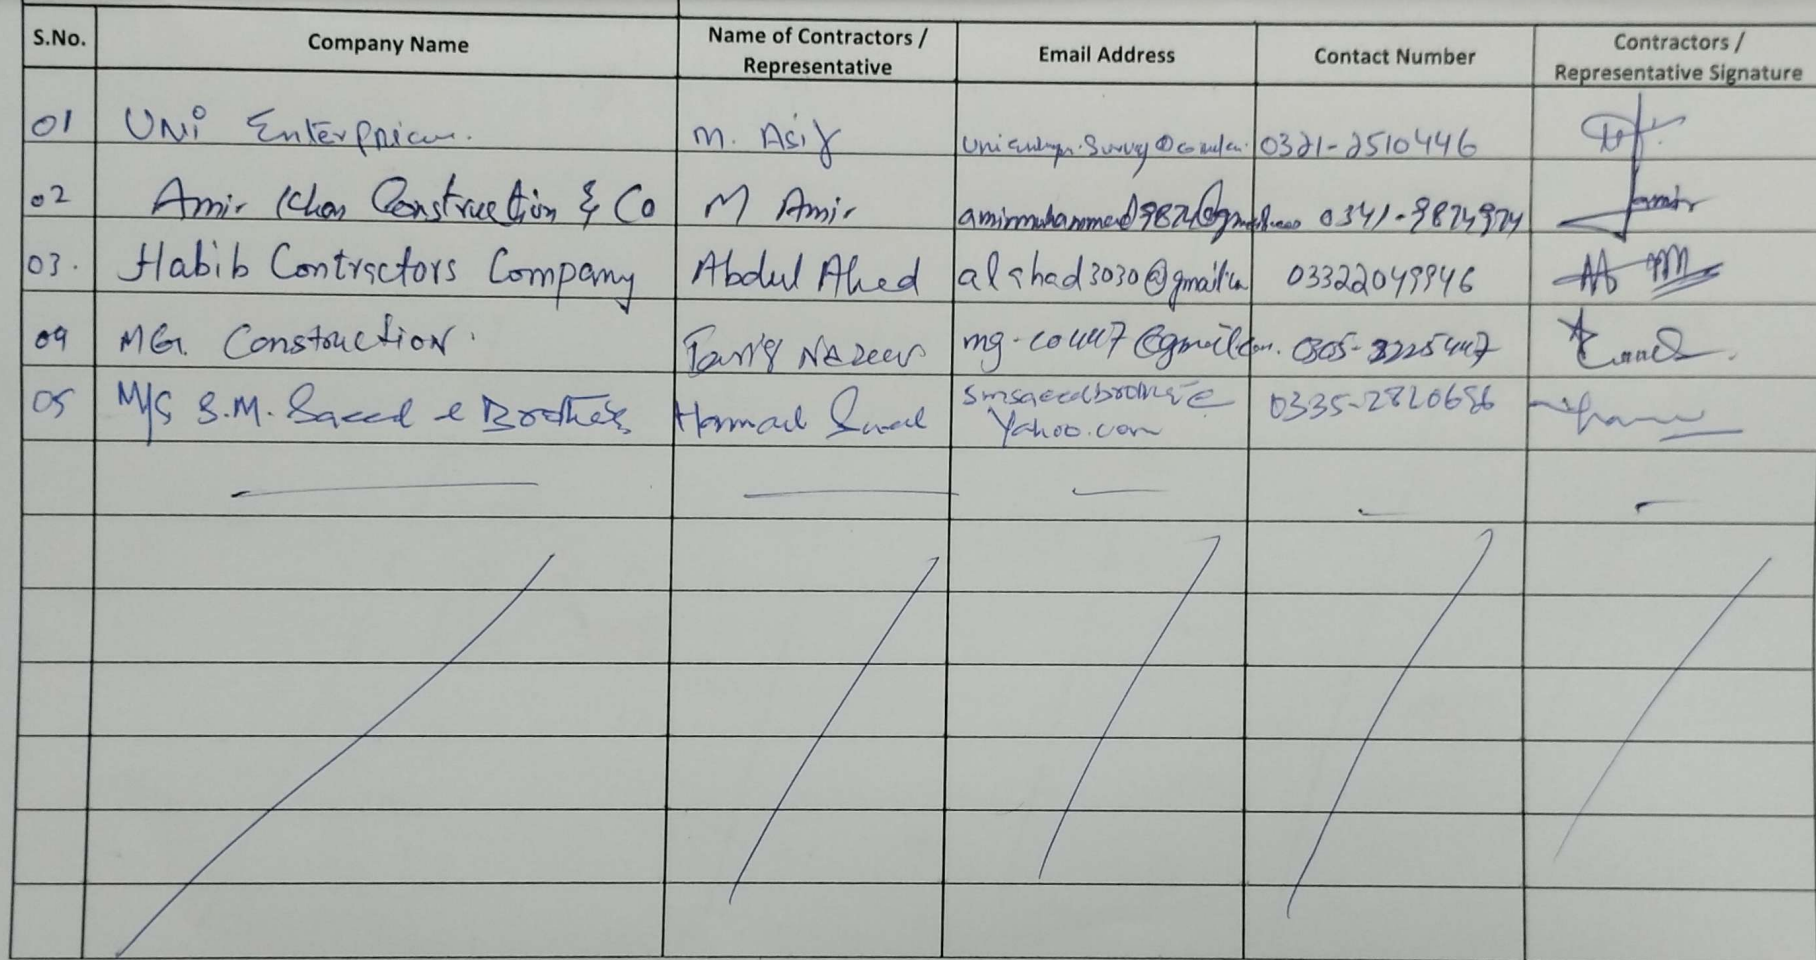 S.No. Company Name Name of Contractors / Representative Email Address Contact Number Contractors / Representative Signature
01 UNi Enterprices. M. Asif 0321-2510446
02 Amir Khan Construction & Co M Amir 0341-9874974
03. Habib Contractors Company Abdul Ahed alahad3030@gmail.com 03322049946
04 MG. Construction. Tariq Nazeer 0305-2225447
05 M/S S.M. Saeed & Brothers Hammad Saeed 0335-2820686
Yahoo.com